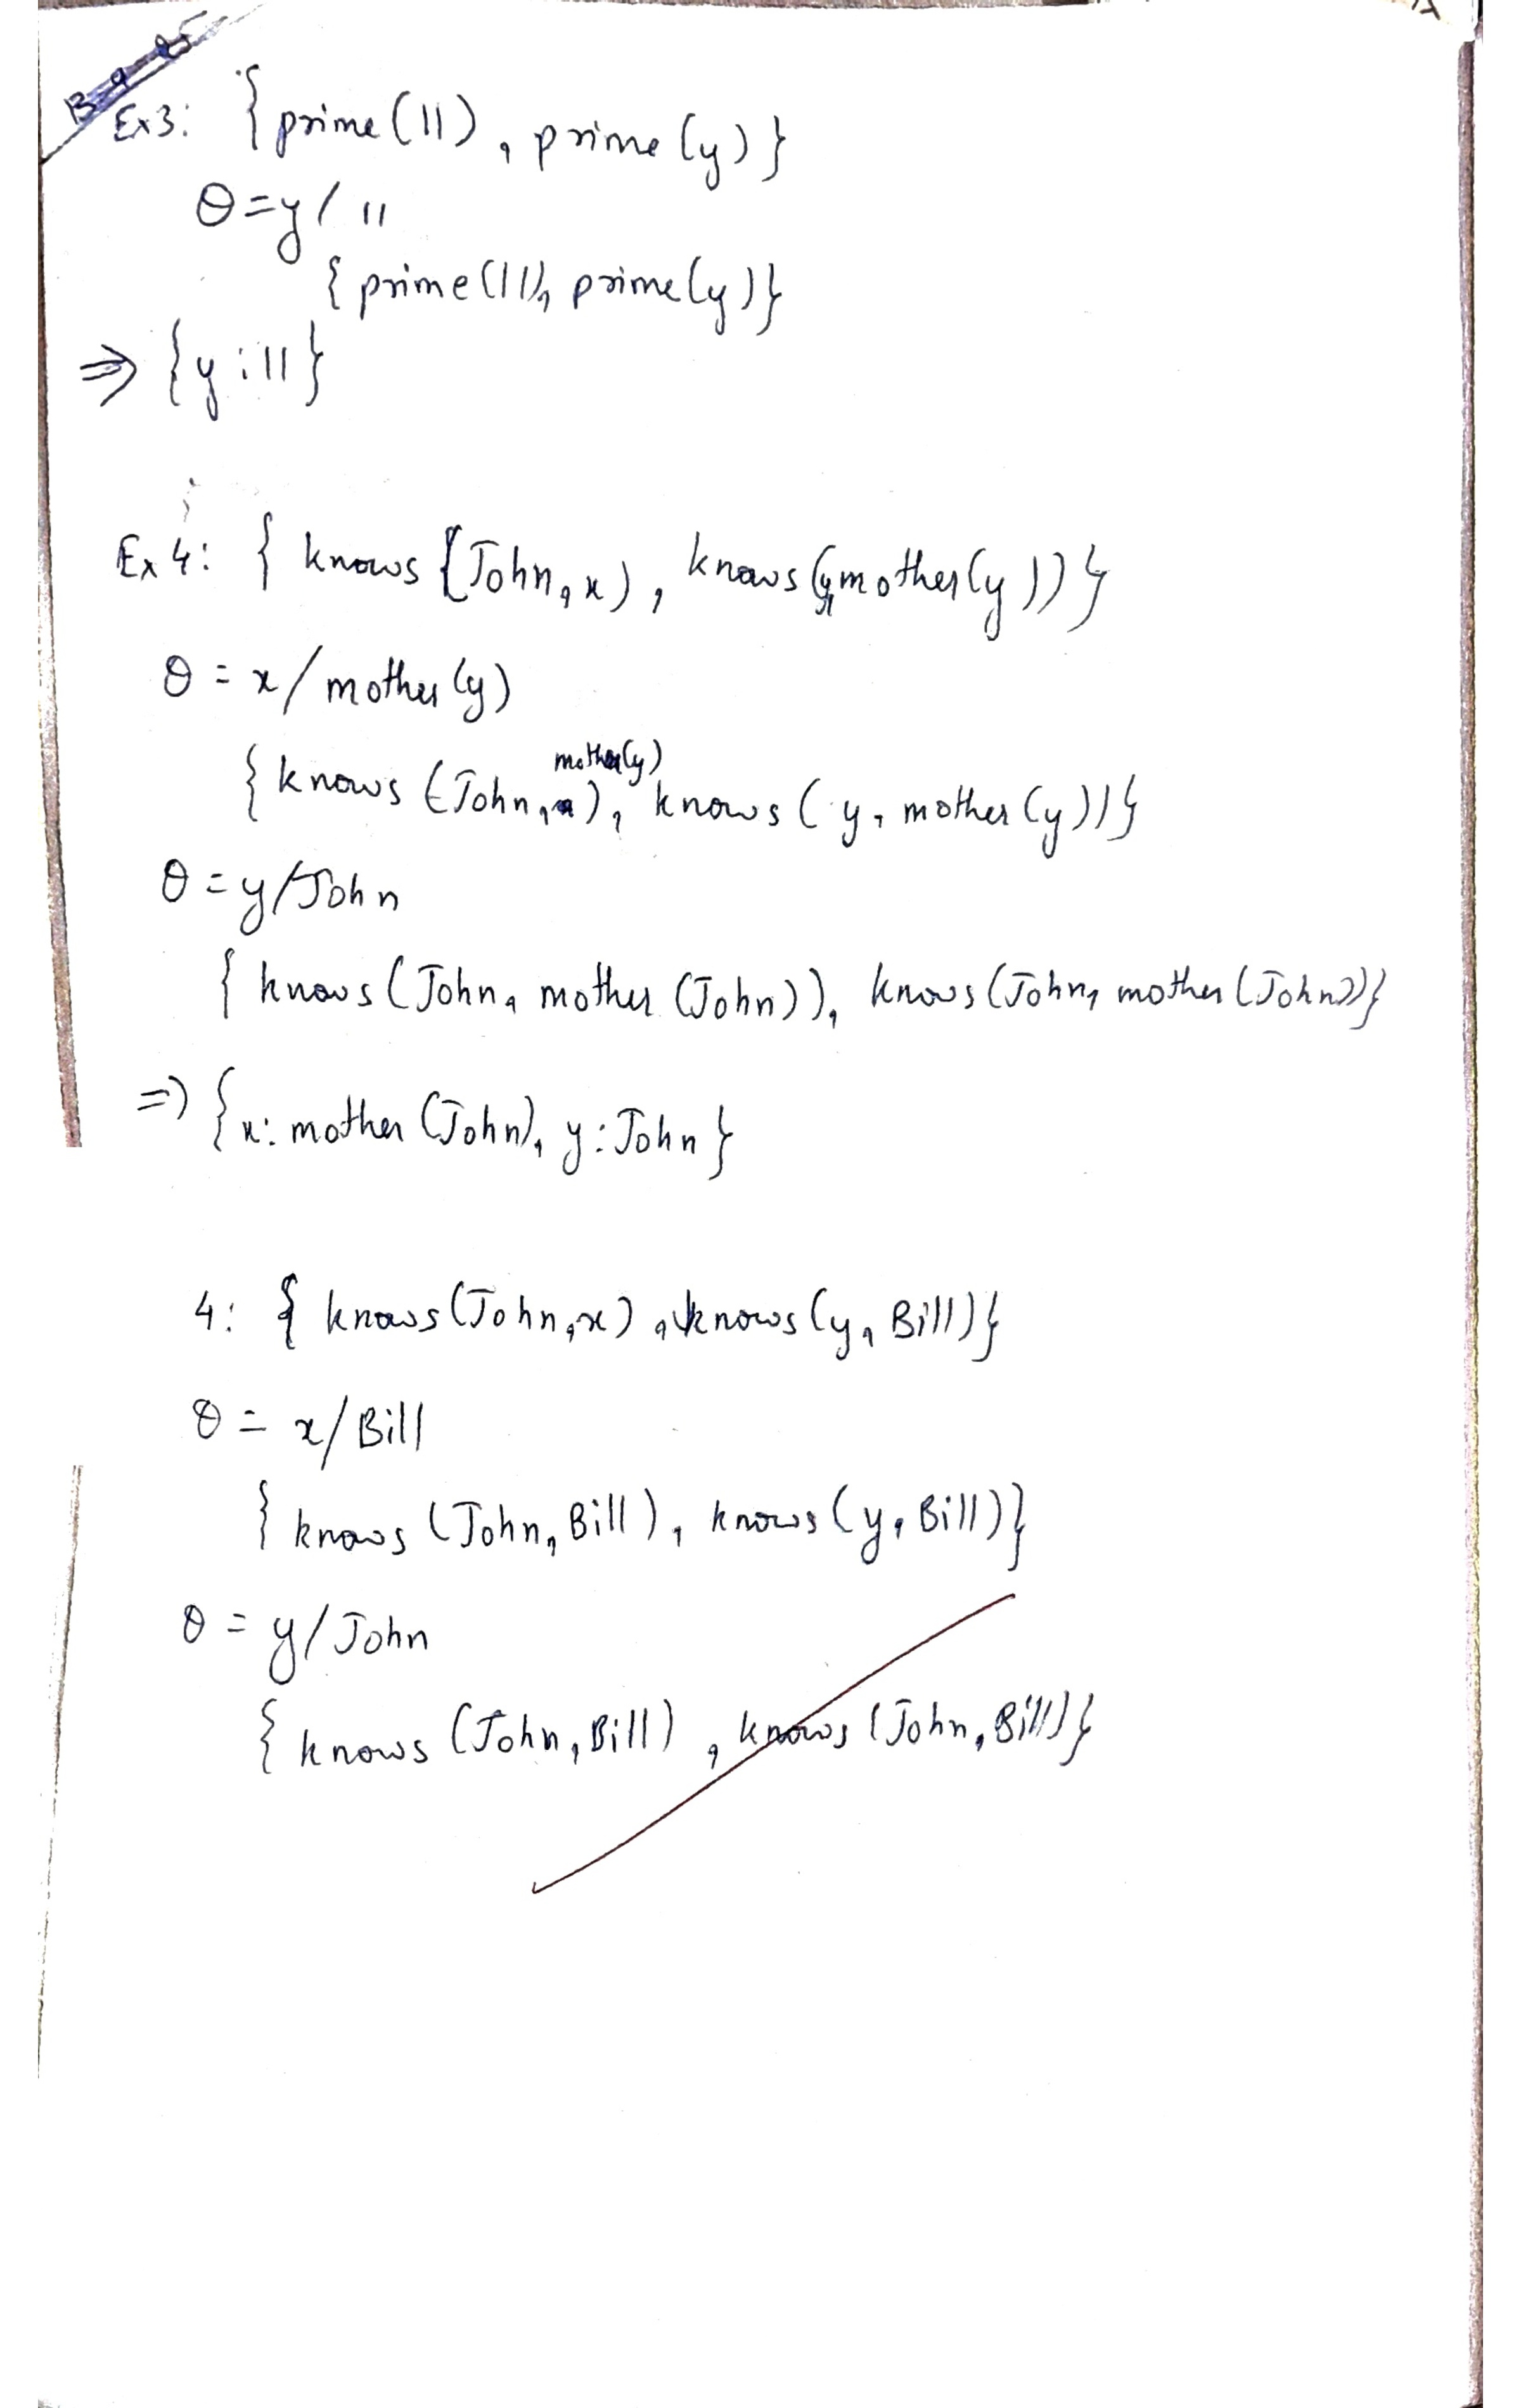 Ex3: { prime(11), prime(y)}
θ=y/11
{ prime(11), prime(y)}
⇒ {y:11}
Ex 4: { knows {John,x), knows(y,mother(y))}
θ = x/mother(y)
mother(y)
{ knows (John, ), knows (y, mother(y))}
θ = y/John
{ knows (John, mother (John)), knows (John, mother (John))}
=> {x: mother (John), y: John}
4: { knows (John,x), knows (y, Bill)}
θ = x/Bill
{ knows (John, Bill), knows (y, Bill)}
θ = y/John
{ knows (John, Bill), knows (John, Bill)}